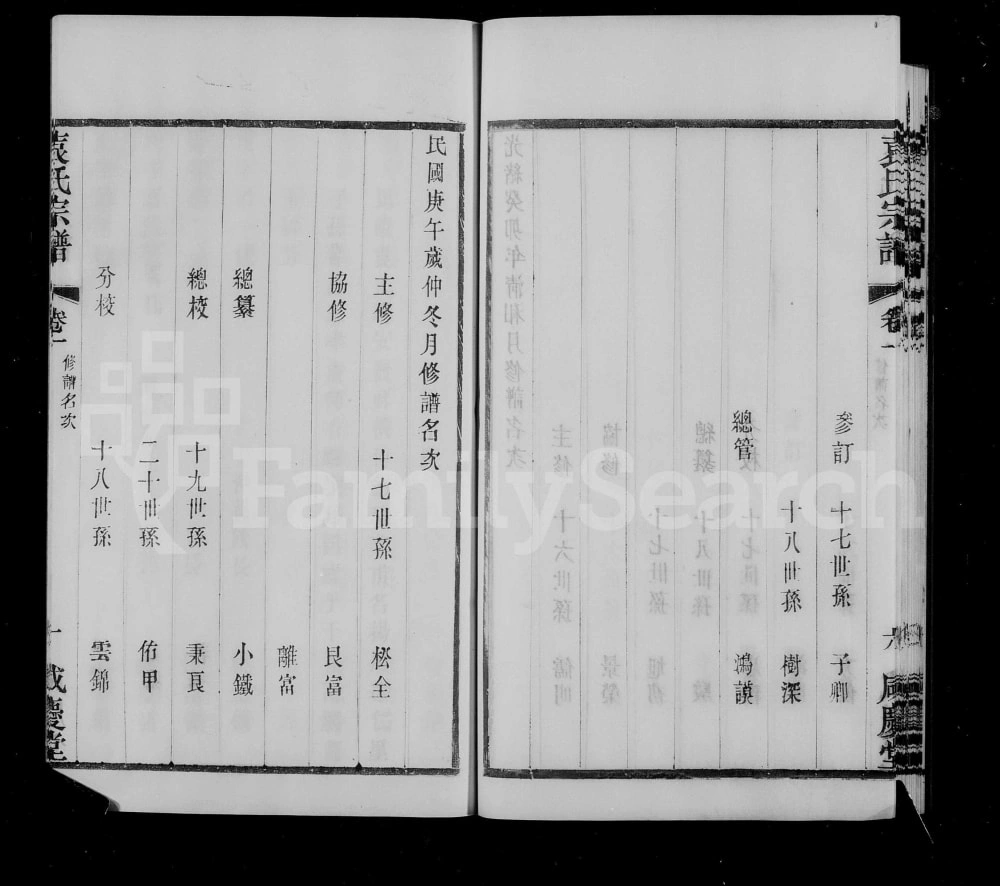 袁氏宗譜
卷一
修譜名次
六
咸慶堂
參訂 十七世孫 子卿
十八世孫 樹深
總管 鴻謨
民國庚午歲仲冬月修譜名次
主修 十七世孫 松全
協修 艮富
離富
總纂 小鐵
總校 十九世孫 秉良
二十世孫 佑甲
分校 十八世孫 雲錦
袁氏宗譜
卷一
修譜名次
咸慶堂
FamilySearch